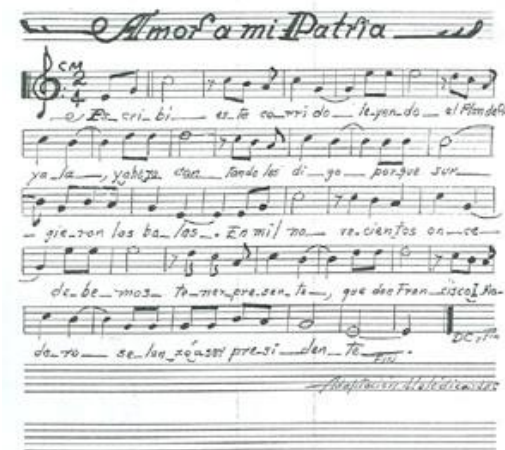 Amor a mi Patria
CM
2
4
Es_cri_bi__ es_te co_rri do__ le_yen_do__ el Plan de A
ya_la__, y ahora can_tando les di_go__ por que sur__
gie_ron las ba_las__. En mil no__ ve_cientos on_ce__
de_be_mos__ te_ner pre_sen_te__, que don Fran_cisco I. Ma_
de_ro__ se lan_zó a ser pre_si__den_te__.
FIN
DC. y Fin
Adaptación Melódica